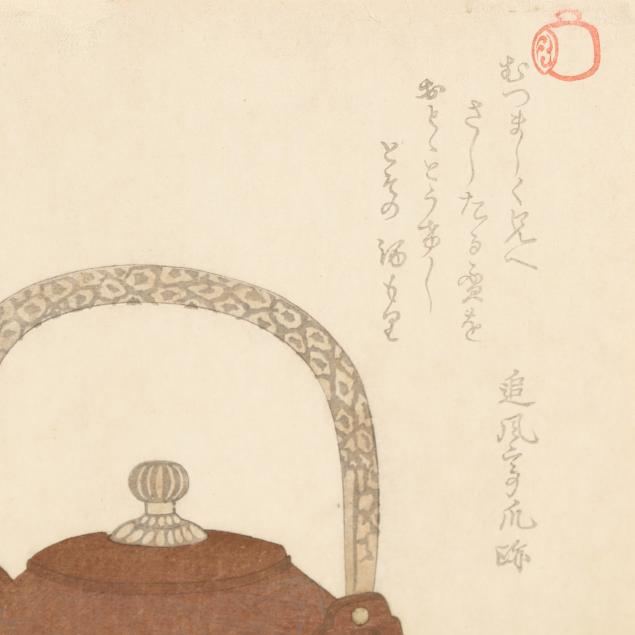 むつましく兄へ
さしたる盃を
おとゝとうけし
とその酒もり
追風亭爪跡